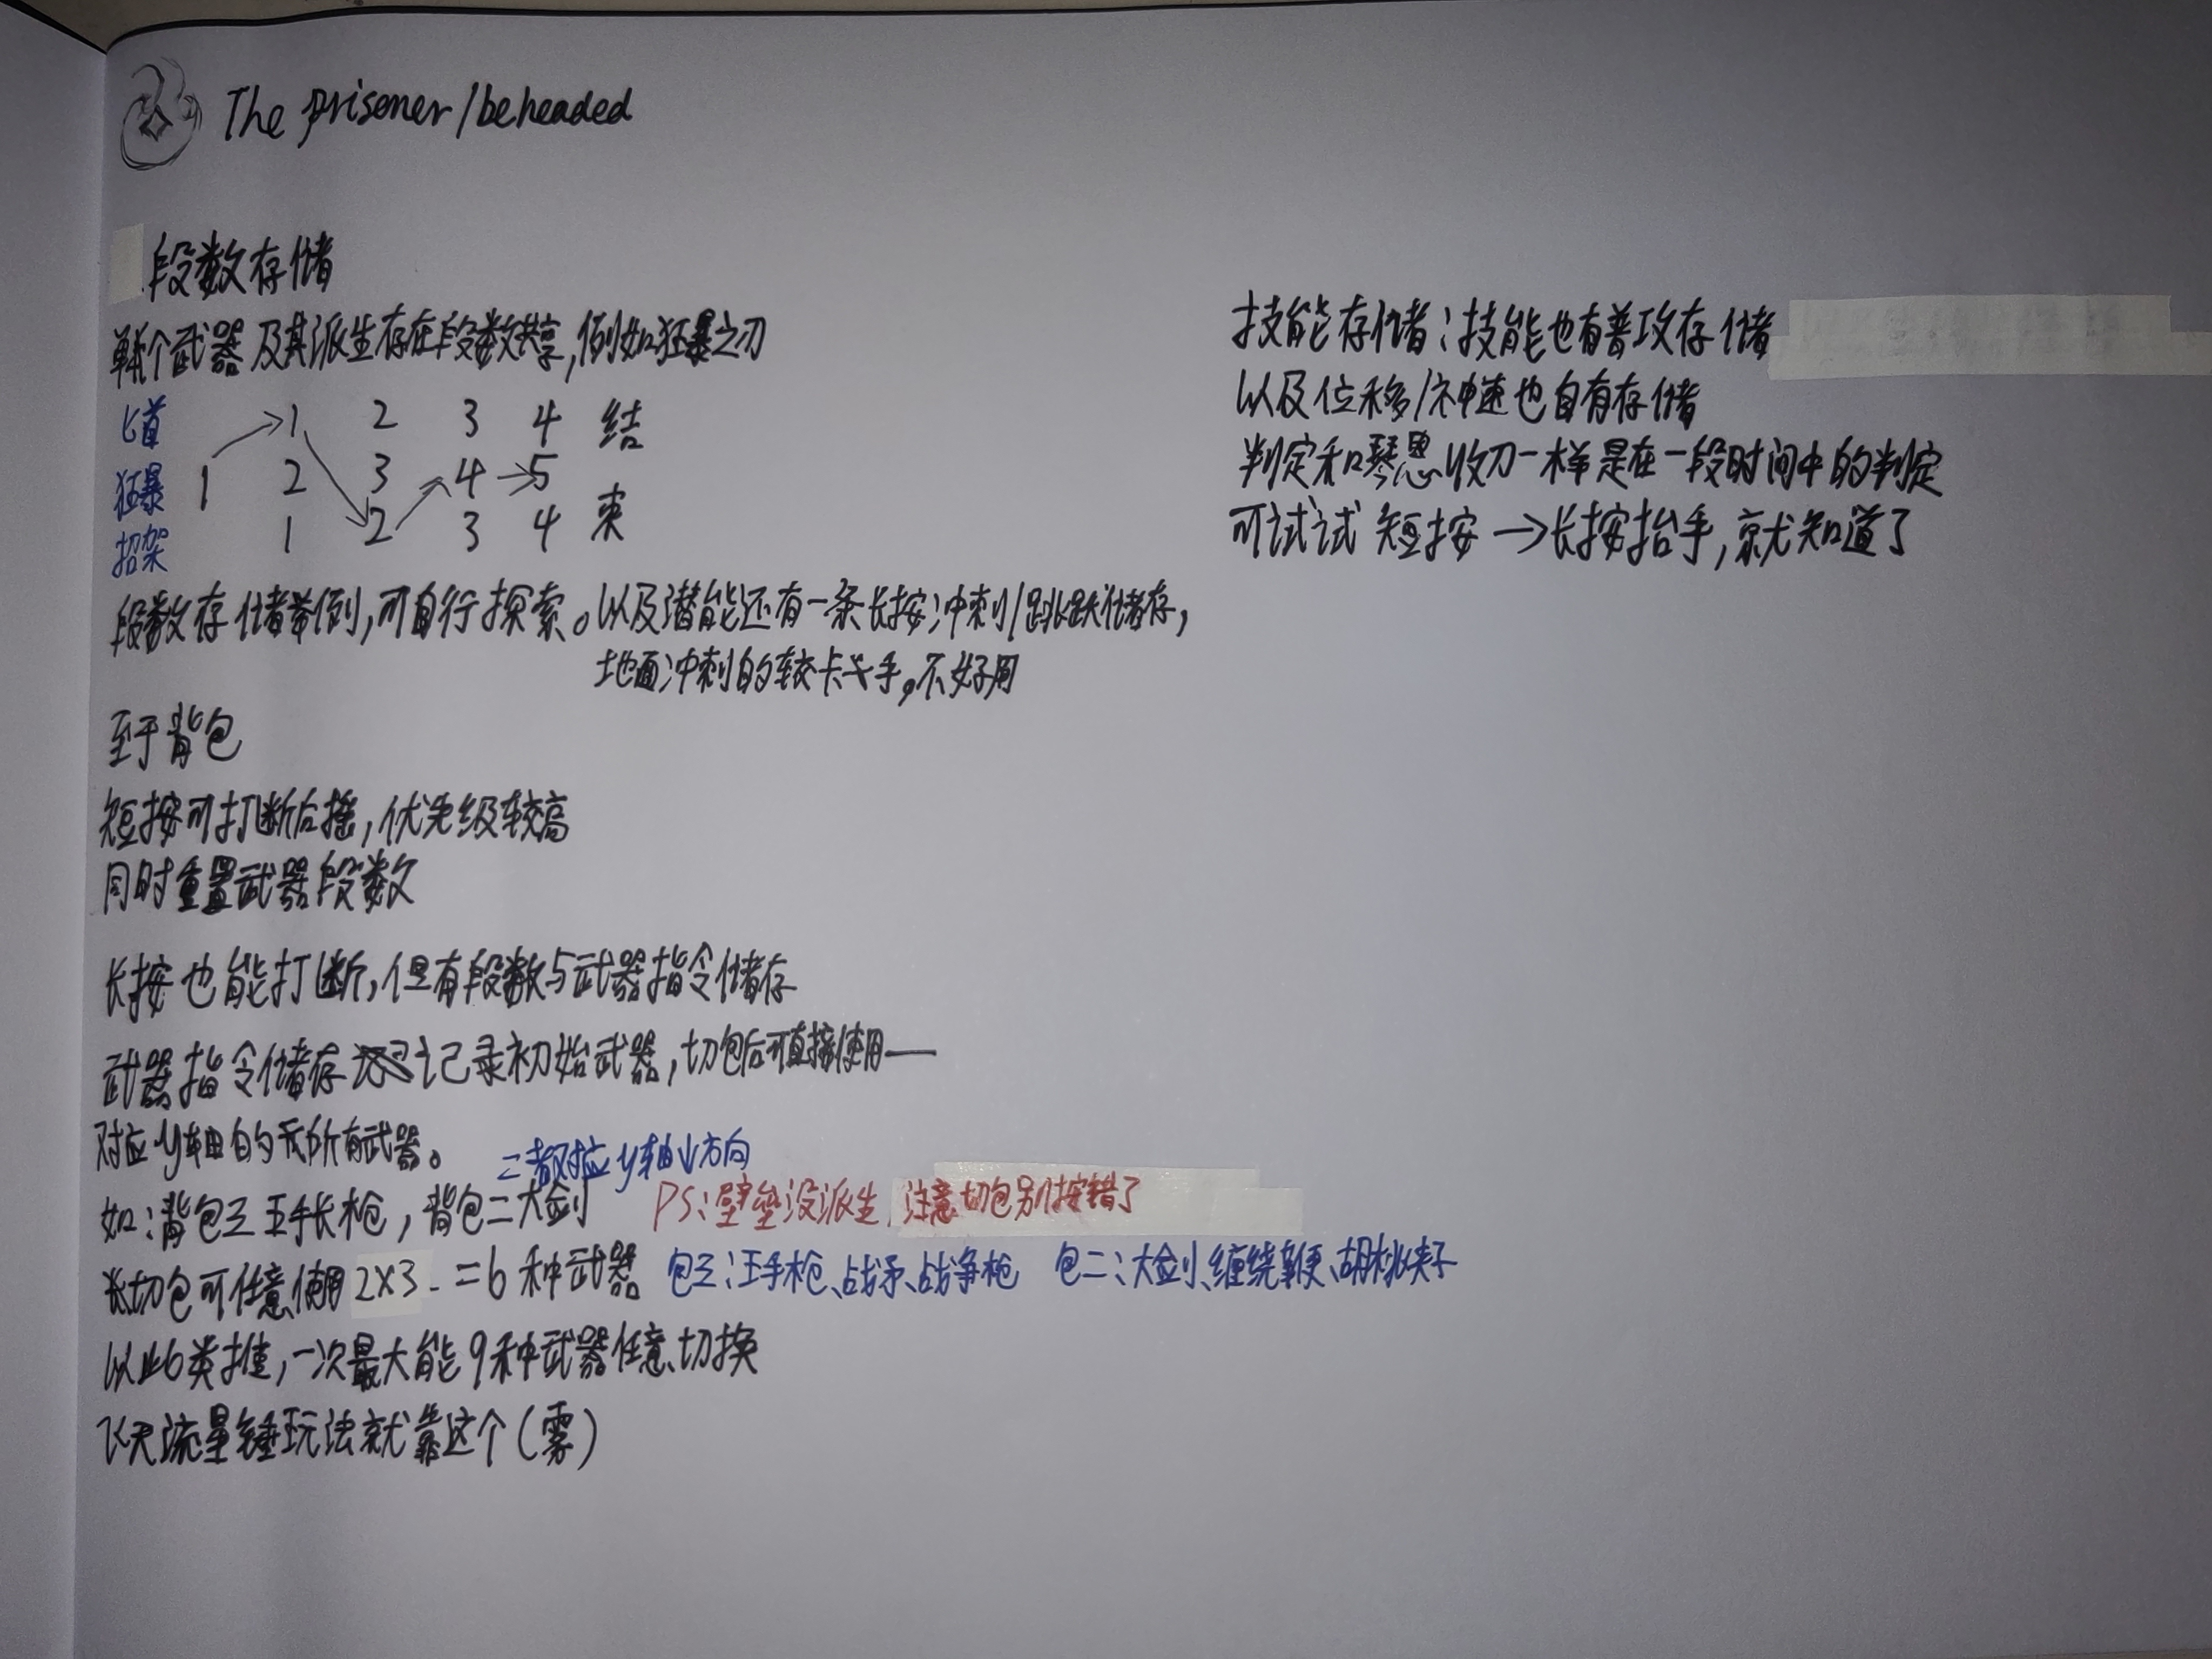 The prisoner/beheaded
段数存储
单个武器及其派生存在段数共享,例如狂暴之刃
匕首 1 2 3 4 结
狂暴 1 2 3 4 5
招架 1 2 3 4 束
段数存储举例,可自行探索。以及潜能还有一条长按冲刺/跳跃储存,
地面冲刺的较卡手,不好用
至于背包
短按可打断后摇,优先级较高
同时重置武器段数
长按也能打断,但有段数与武器指令储存
武器指令储存记录初始武器,切包后可直接使用—
对应y轴的所有武器。
二者都对应y轴↓方向
如:背包三王手长枪,背包二大剑
PS:壁垒没派生,注意切包别按错了
长切包可任意使用2X3=6种武器
包三:王手枪、战矛、战争枪 包二:大剑、缠绕鞭、胡桃夹子
以此类推,一次最大能9种武器任意切换
飞天流星锤玩法就靠这个(雾)
技能存储:技能也有普攻存储
以及位移/神速也自有存储
判定和琴恩收刀一样是在一段时间中的判定
可试试 短按→长按抬手,就知道了